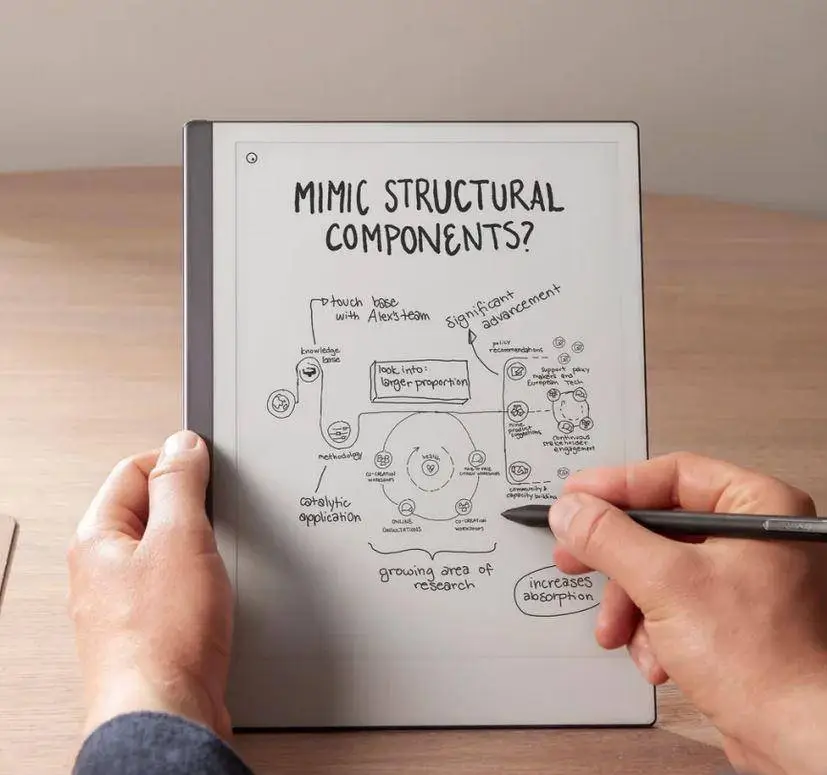 MIMIC STRUCTURAL
COMPONENTS?
touch base
with Alex's team
significant
advancement
knowledge
base
policy
recommendations
look into:
larger proportion
support policy
makers and
European Tech
nine
product
suggestions
continuous
stakeholder
engagement
methodology
health
CO-CREATION
WORKSHOPS
FACE-TO-FACE
community &
capacity building
catalytic
application
ONLINE
CONSULTATIONS
CO-CREATION
WORKSHOPS
growing area of
research
increases
absorption